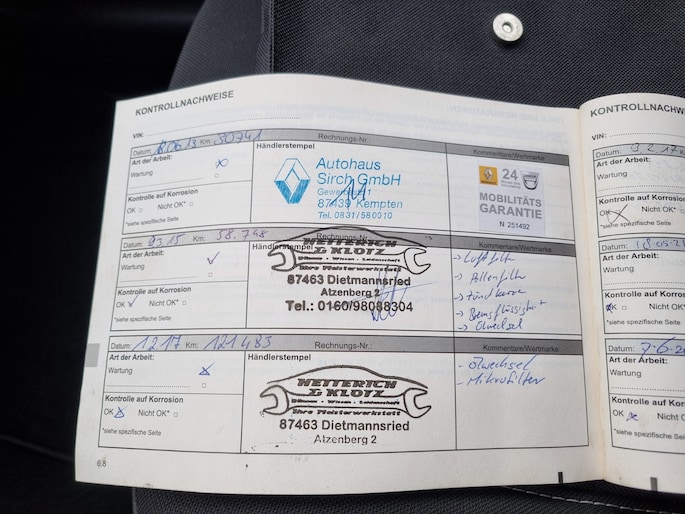 KONTROLLNACHWEISE
VIN:
Datum: 8.06.13 Km: 30741
Rechnungs-Nr.:
Art der Arbeit:
Wartung
Händlerstempel
Autohaus
Sirch GmbH
Gewerbestr. 1
87439 Kempten
Tel. 0831/580010
Kommentare/Wertmarke
24
MOBILITÄTS
GARANTIE
N 251492
Kontrolle auf Korrosion
OK Nicht OK*
*siehe spezifische Seite
Datum: 9.3.15 Km: 58.748
Rechnungs-Nr.:
Art der Arbeit:
Wartung
Händlerstempel
HETTERICH
& KLOTZ
Können - Wissen - Leidenschaft
Ihre Meisterwerkstatt
87463 Dietmannsried
Atzenberg 2
Tel.: 0160/98088304
Kommentare/Wertmarke
→ Luftfilter
→ Pollenfilter
→ Zündkerze
→ Bremsflüssigkeit
→ Ölwechsel
Kontrolle auf Korrosion
OK Nicht OK*
*siehe spezifische Seite
Datum: 12.17 Km: 121483
Rechnungs-Nr.:
Art der Arbeit:
Wartung
Händlerstempel
HETTERICH
& KLOTZ
Können - Wissen - Leidenschaft
Ihre Meisterwerkstatt
87463 Dietmannsried
Atzenberg 2
Kommentare/Wertmarke
- Ölwechsel
- Mikrofilter
Kontrolle auf Korrosion
OK Nicht OK*
*siehe spezifische Seite
68
KONTROLLNACHW
VIN:
Datum: 9.2.17
Art der Arbeit:
Wartung
Kontrolle auf Korrosion
OK Nicht OK
*siehe spezifische Seite
Datum: 18.05.2
Art der Arbeit:
Wartung
Kontrolle auf Korrosion
OK Nicht OK
*siehe spezifische Seite
Datum: 7.6.20
Art der Arbeit:
Wartung
Kontrolle auf Korrosion
OK Nicht OK
*siehe spezifische Seite